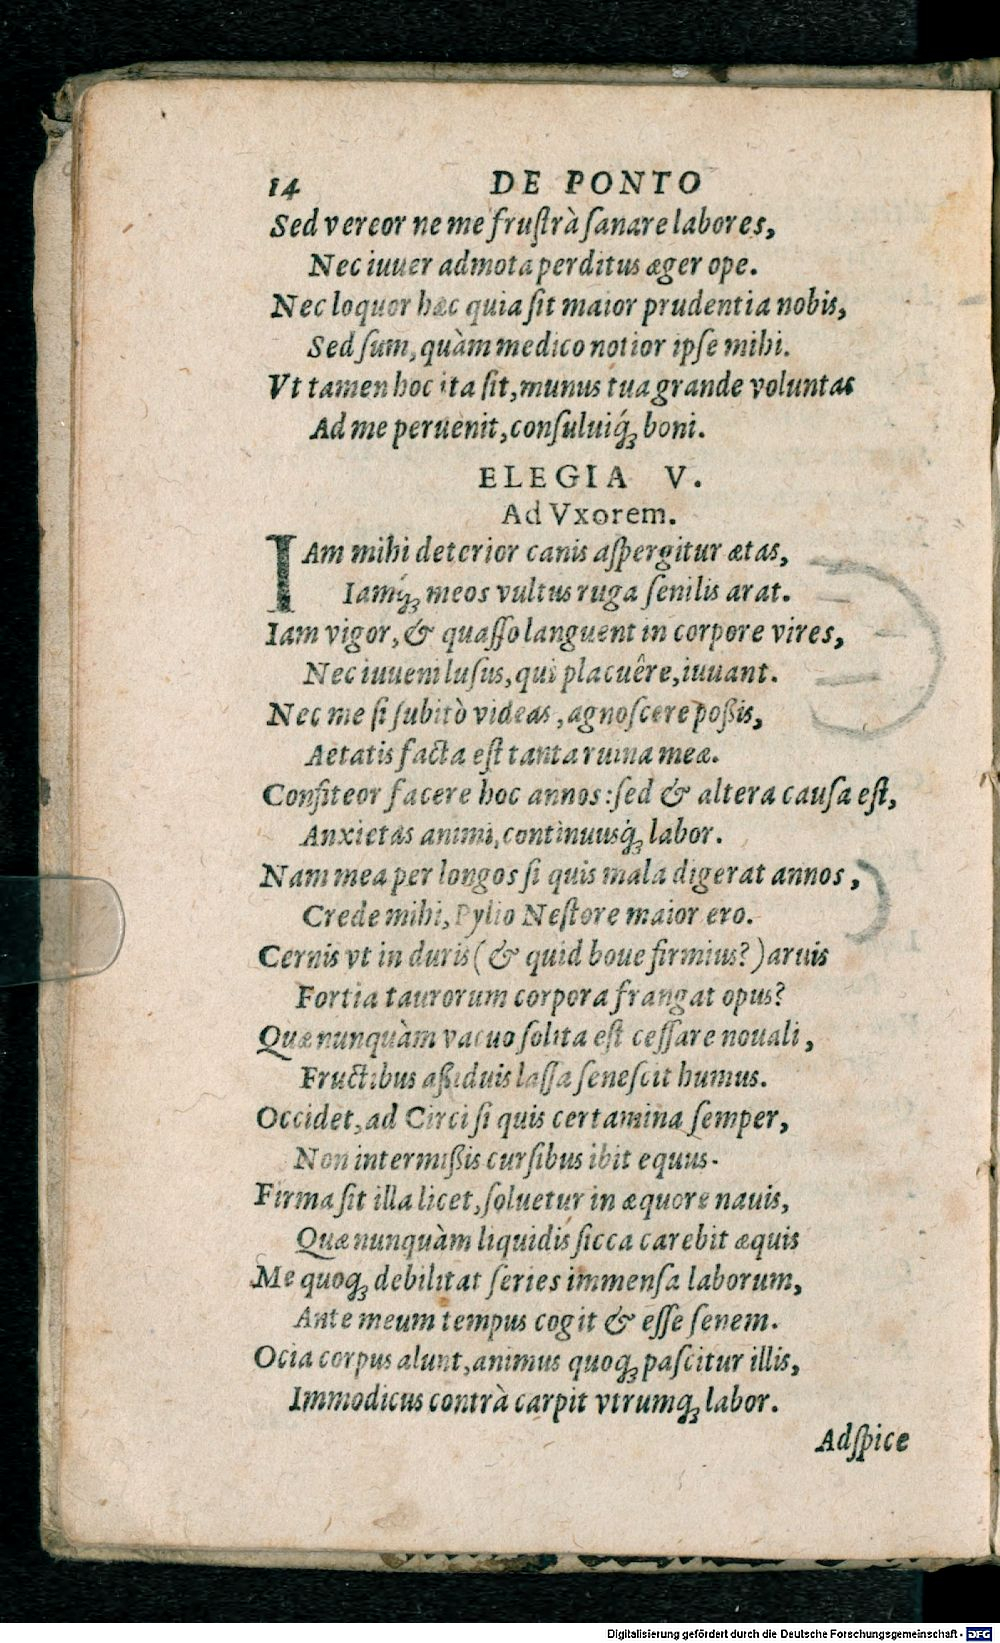 14 DE PONTO
Sed vereor ne me fruſtrà ſanare labores,
Nec iuuer admota perditus æger ope.
Nec loquor hæc quia ſit maior prudentia nobis,
Sed ſum, quàm medico notior ipſe mihi.
Vt tamen hoc ita ſit, munus tua grande voluntas
Ad me peruenit, conſuluiq́ꝫ boni.
ELEGIA V.
Ad Vxorem.
IAm mihi deterior canis aſpergitur ætas,
Iamq́ꝫ meos vultus ruga ſenilis arat.
Iam vigor, & quaſſo languent in corpore vires,
Nec iuueni luſus, qui placuêre, iuuant.
Nec me ſi ſubitò videas, agnoſcere poßis,
Aetatis facta eſt tanta ruina meæ.
Confiteor facere hoc annos: ſed & altera cauſa eſt,
Anxietas animi, continuusq́ꝫ labor.
Nam mea per longos ſi quis mala digerat annos,
Crede mihi, Pylio Neſtore maior ero.
Cernis vt in duris (& quid boue firmius?) aruis
Fortia taurorum corpora frangat opus?
Quæ nunquàm vacuo ſolita eſt ceſſare nouali,
Fructibus aßiduis laſſa ſeneſcit humus.
Occidet, ad Circi ſi quis certamina ſemper,
Non intermißis curſibus ibit equus.
Firma ſit illa licet, ſoluetur in æquore nauis,
Quæ nunquàm liquidis ſicca carebit æquis
Me quoqꝫ debilitat ſeries immenſa laborum,
Ante meum tempus cogit & eſſe ſenem.
Ocia corpus alunt, animus quoqꝫ paſcitur illis,
Immodicus contrà carpit vtrumqꝫ labor.
Adſpice
Digitalisierung gefördert durch die Deutsche Forschungsgemeinschaft - DFG